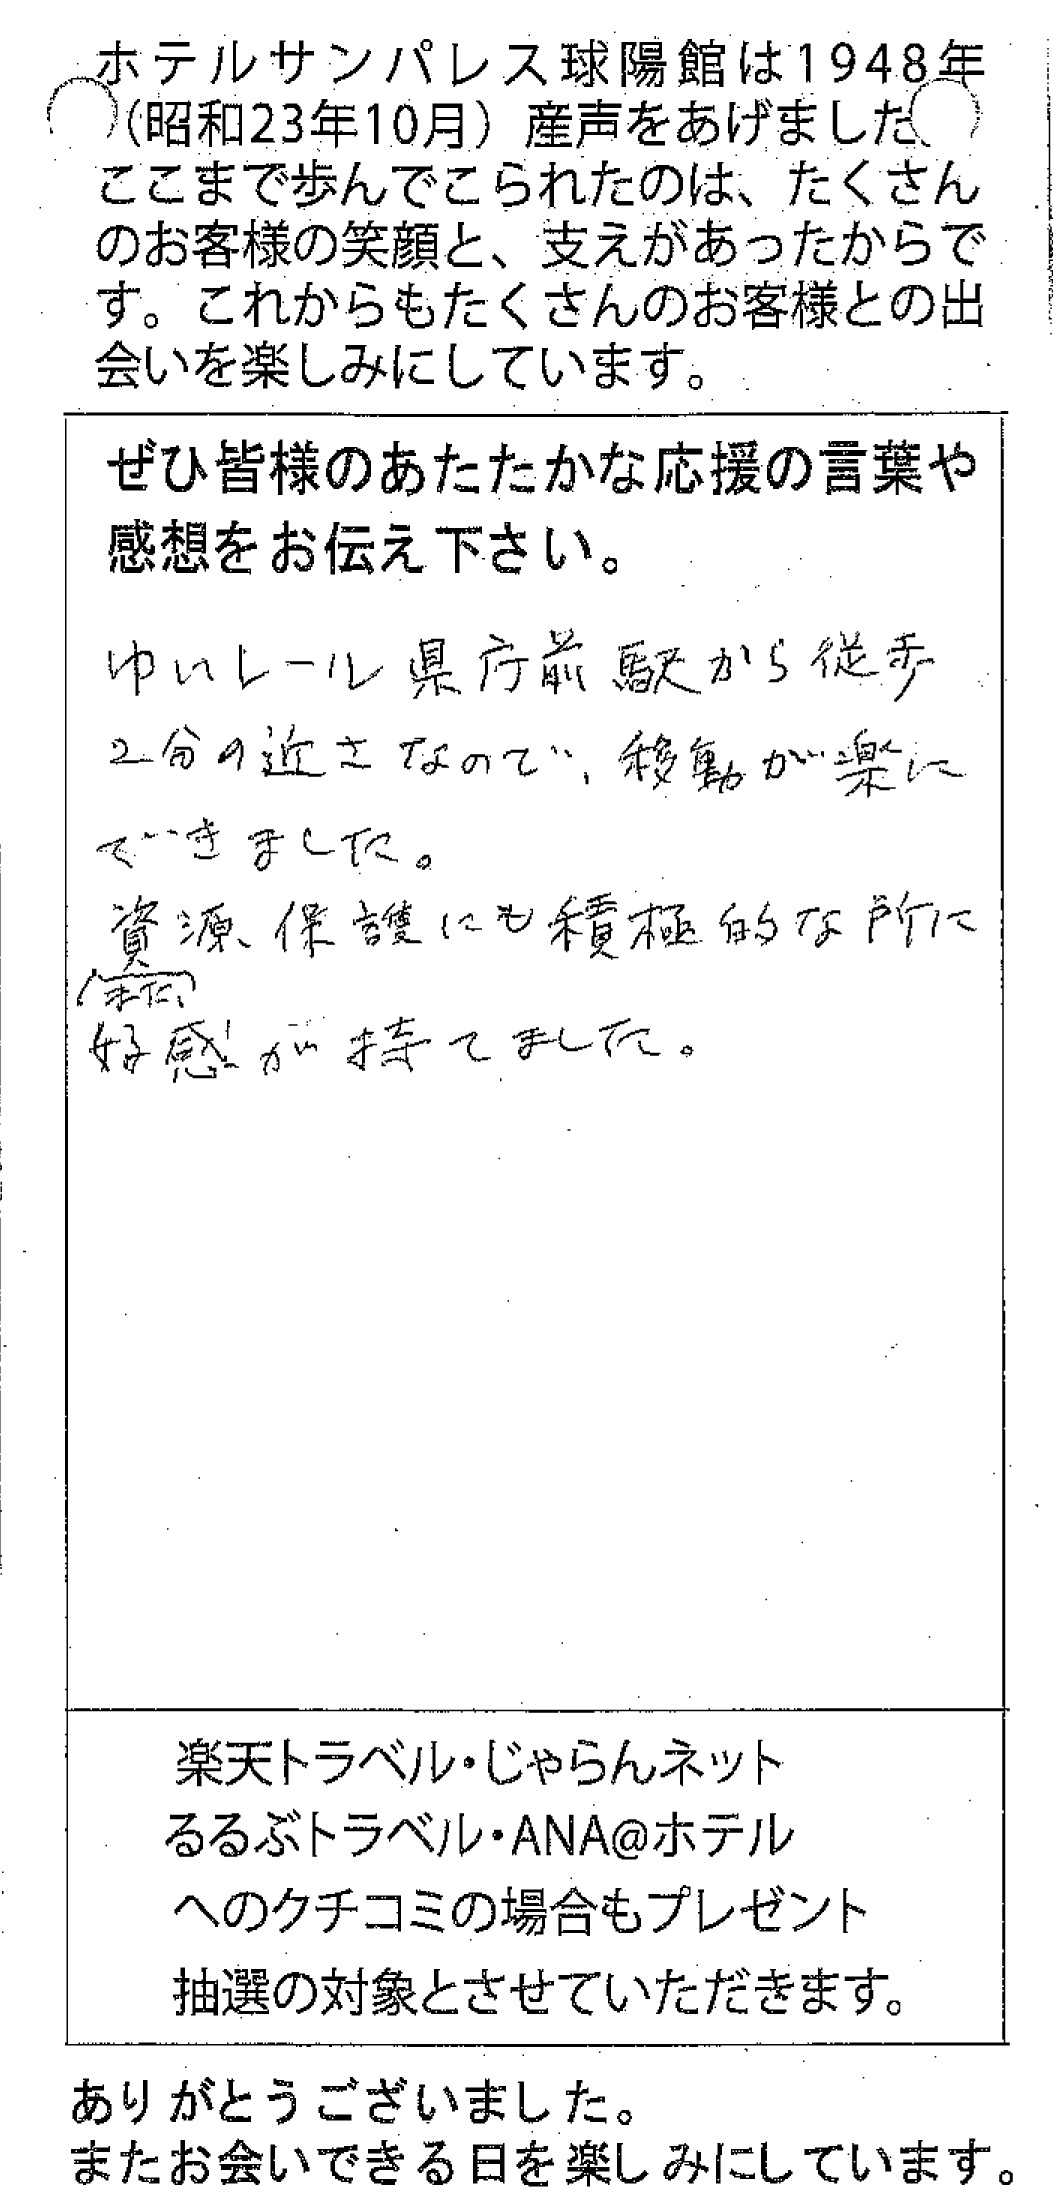 ホテルサンパレス球陽館は1948年
（昭和23年10月）産声をあげました、
ここまで歩んでこられたのは、たくさん
のお客様の笑顔と、支えがあったからで
す。これからもたくさんのお客様との出
会いを楽しみにしています。
ぜひ皆様のあたたかな応援の言葉や
感想をお伝え下さい。
ゆいレール県庁前駅から徒歩
2分の近さなので、移動が楽に
できました。
資源保護にも積極的な所に
また、
好感が持てました。
楽天トラベル・じゃらんネット
るるぶトラベル・ANA@ホテル
へのクチコミの場合もプレゼント
抽選の対象とさせていただきます。
ありがとうございました。
またお会いできる日を楽しみにしています。